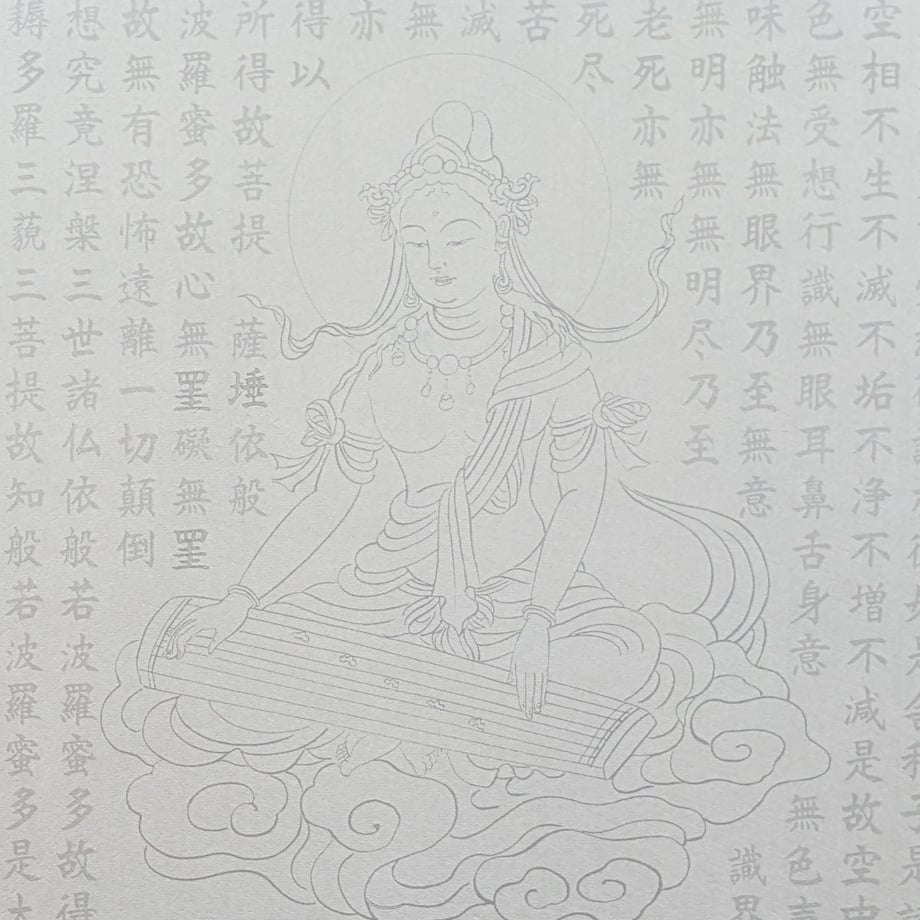 空相不生不滅不垢不浄不増不減是故空中
色無受想行識無眼耳鼻舌身意 無色声
味触法無眼界乃至無意 識界
無明亦無無明尽乃至
老死亦無
死尽
苦
滅
無
亦
得以
所得故菩提 薩埵依般
波羅蜜多故心無罣礙無罣
故無有恐怖遠離一切顛倒
想究竟涅槃三世諸仏依般若波羅蜜多故得
耨多羅三藐三菩提故知般若波羅蜜多是大